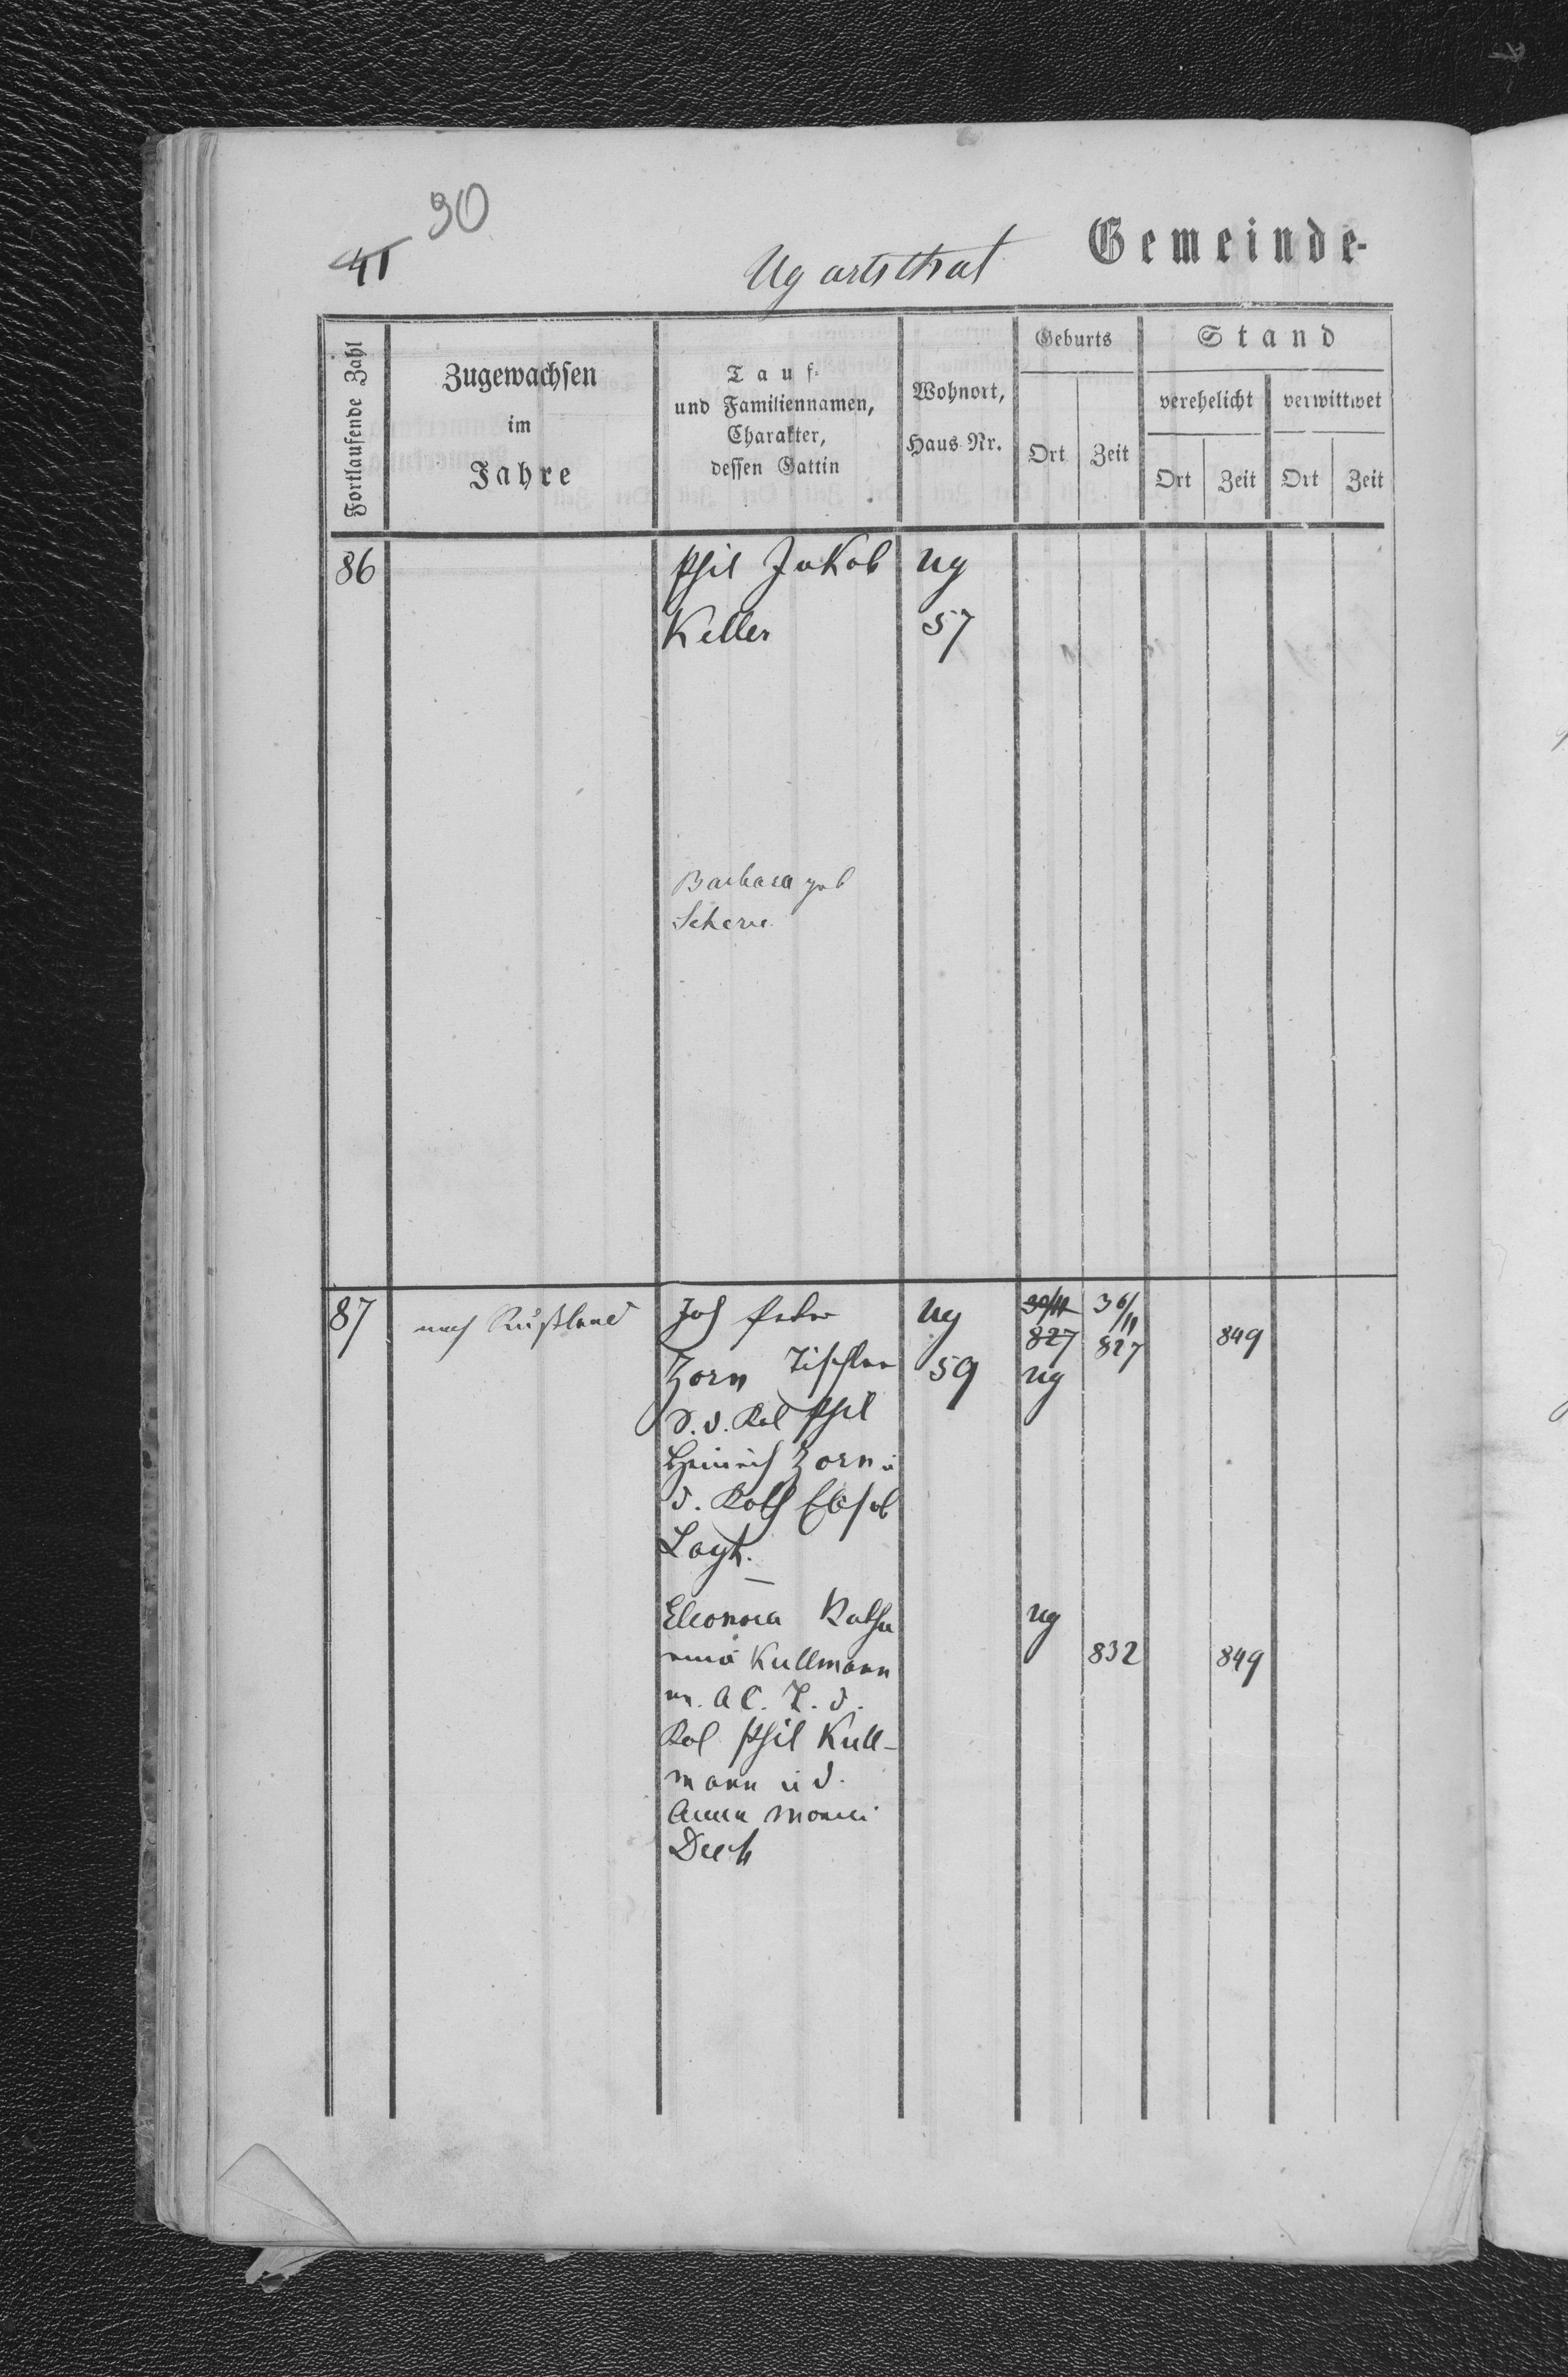 30
41
Ugartsthal
Gemeinde-
Fortlaufende Zahl
Zugewachsen
im
Jahre
Tauf-
und Familiennamen,
Charakter,
dessen Gattin
Wohnort,
Haus-Nr.
Geburts
Ort
Zeit
Stand
verehelicht
Ort
Zeit
verwittwet
Ort
Zeit
86
Phil Jakob
Ug
Keller
57
Barbara geb
87
nach Rußland
Joh Peter
Ug
30/11
30/11
827
827
849
Zorn Tischler
59
Ug
S. d. Kol Phil
Heinrich Zorn u
d. Kath Elisab
Eleonora Katha
Ug
rina Kullmann
832
849
m. A C. T. d.
Kol Phil Kull-
mann u d.
Anna Maria